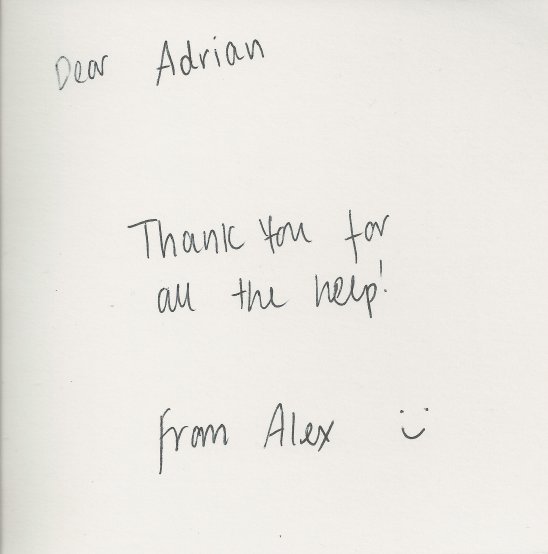 Dear Adrian
Thank you for
all the help!
from Alex :)